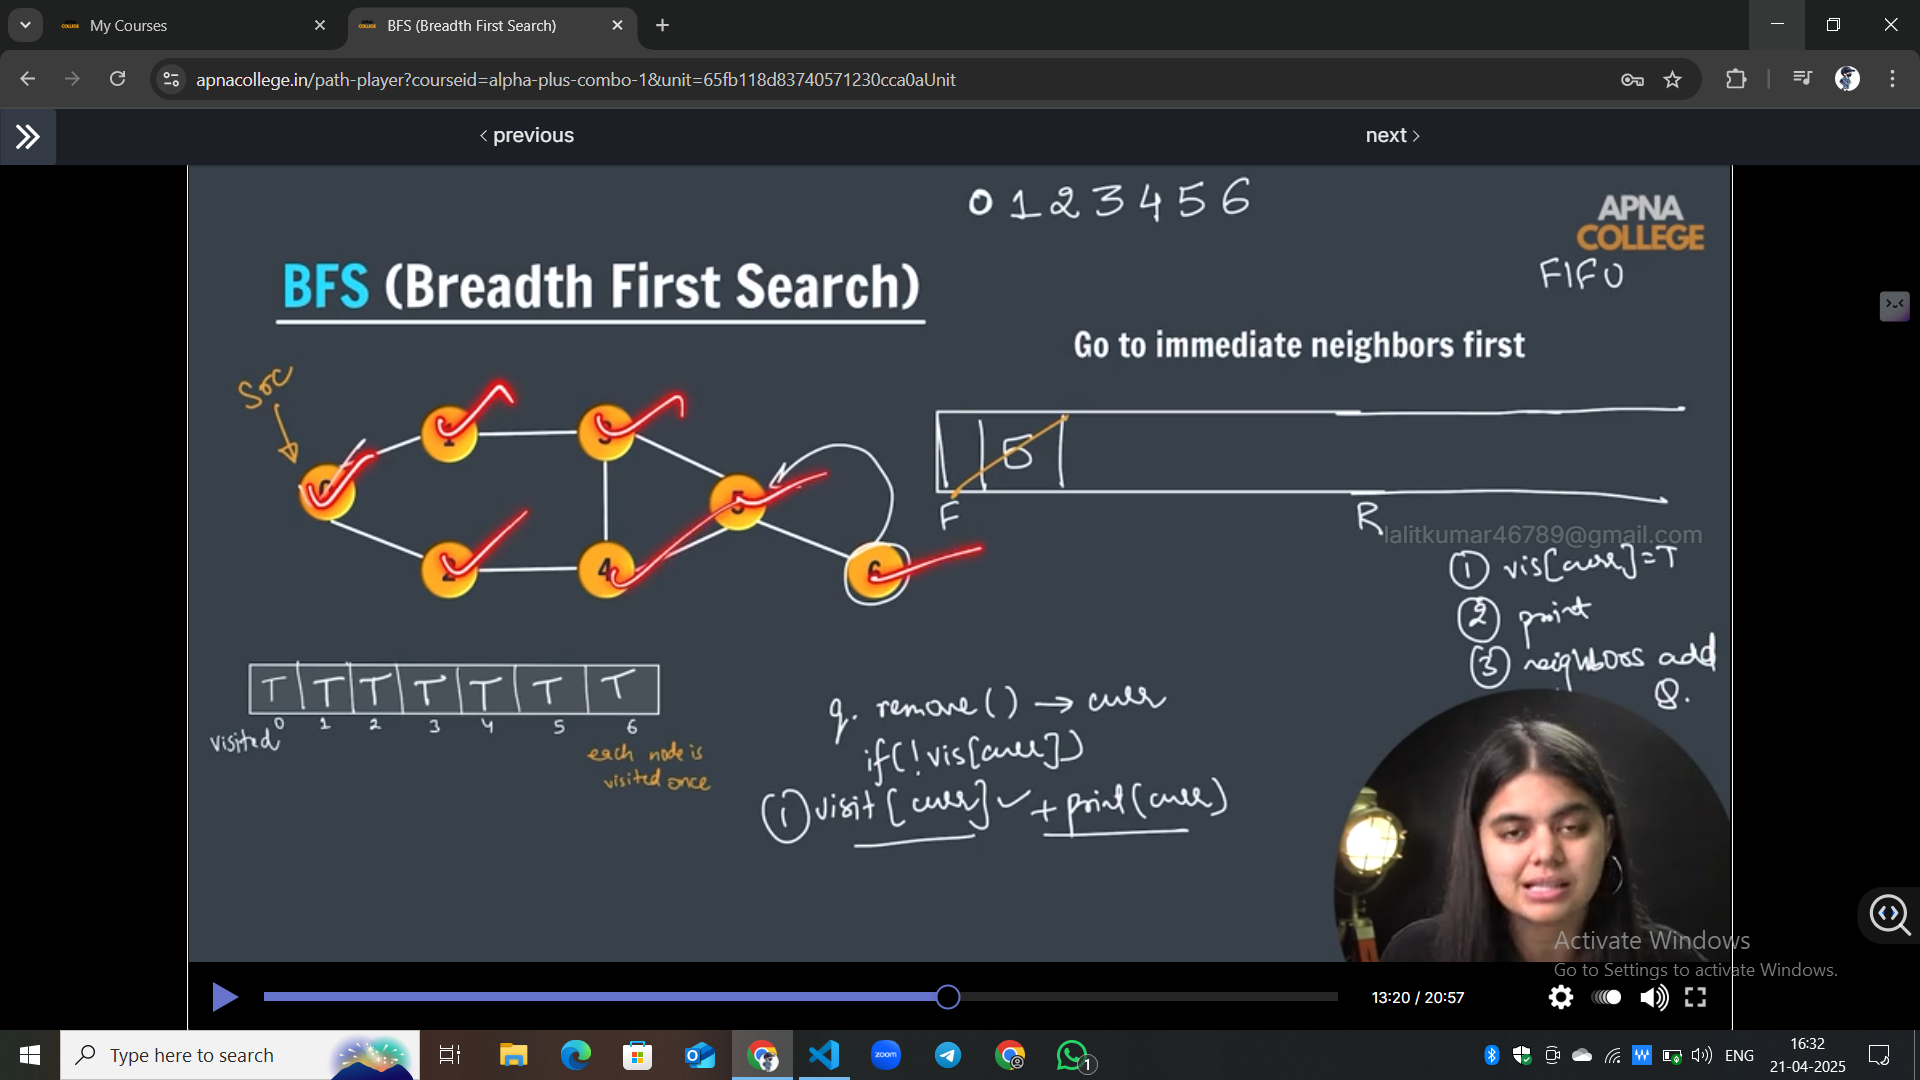 My Courses
BFS (Breadth First Search)
apnacollege.in/path-player?courseid=alpha-plus-combo-1&unit=65fb118d83740571230cca0aUnit
previous
next
0 1 2 3 4 5 6
APNA
COLLEGE
FIFO
BFS (Breadth First Search)
Go to immediate neighbors first
Src
0
1
2
3
4
5
6
5
F
R
lalitkumar46789@gmail.com
① vis[curr]=T
② print
③ neighbors add
Q.
T T T T T T T
0 1 2 3 4 5 6
visited
each node is
visited once
q. remove() → curr
if(!vis[curr])
① visit[curr] ✓ + print(curr)
Activate Windows
Go to Settings to activate Windows.
13:20 / 20:57
Type here to search
zoom
1
ENG
16:32
21-04-2025